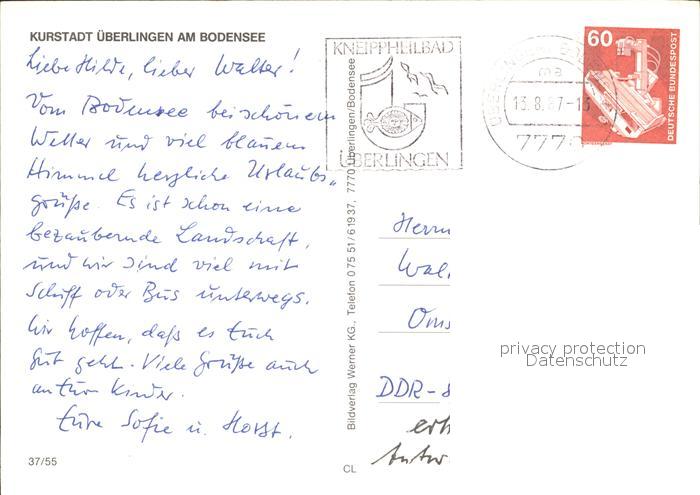 KURSTADT ÜBERLINGEN AM BODENSEE
Liebe Hilde, lieber Walter!
Vom Bodensee bei schönem
Wetter und viel blauem
Himmel herzliche Urlaubs-
grüße. Es ist schon eine
bezaubernde Landschaft,
und wir sind viel mit
Schiff oder Bus unterwegs.
Wir hoffen, daß es Euch
gut geht. Viele Grüße auch
an Eure Kinder.
Eure Sofie u. Horst.
37/55
Bildverlag Werner KG., Telefon 0 75 51/6 19 37, 7770 Überlingen/Bodensee
CL
KNEIPPHEILBAD
ÜBERLINGEN
13.8.87-13
777
60
DEUTSCHE BUNDESPOST
Herrn
Wal
DDR-8
erh
Antw
privacy protection
Datenschutz